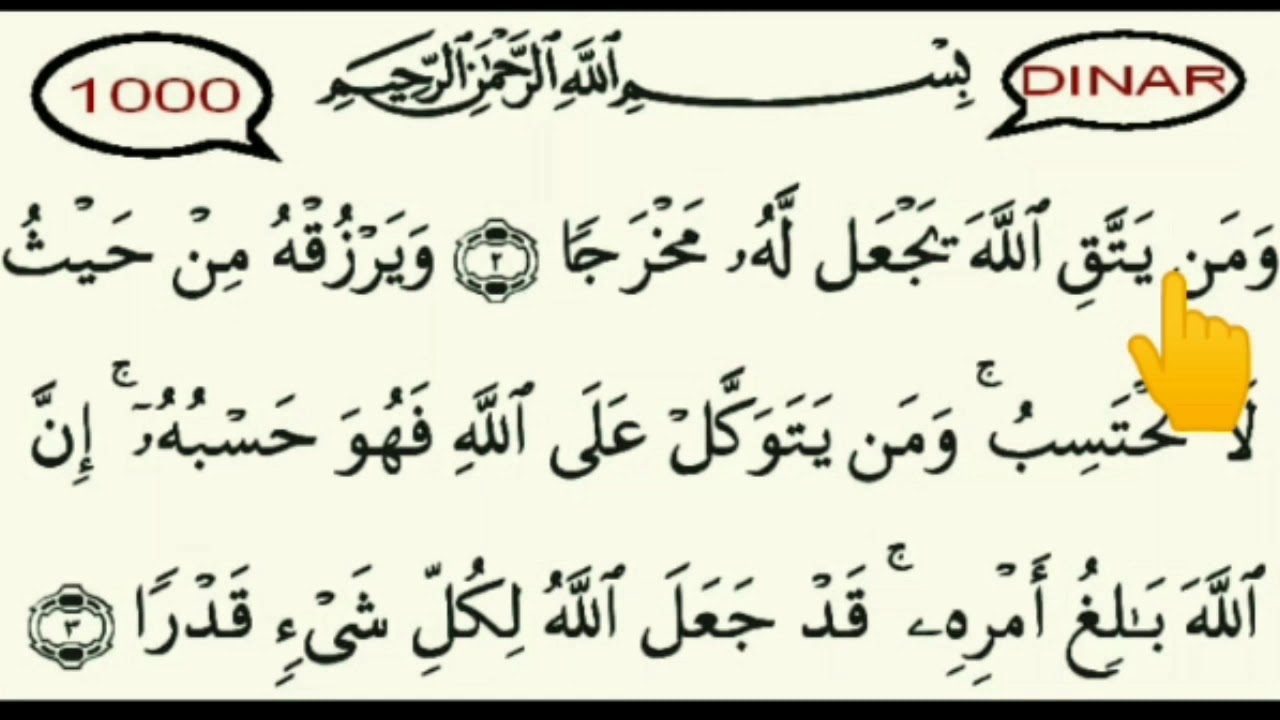 1000
بِسْمِ ٱللَّهِ ٱلرَّحْمَٰنِ ٱلرَّحِيمِ
DINAR
وَمَن يَتَّقِ ٱللَّهَ يَجْعَل لَّهُۥ مَخْرَجًا ٢ وَيَرْزُقْهُ مِنْ حَيْثُ
لَا يَحْتَسِبُ ۚ وَمَن يَتَوَكَّلْ عَلَى ٱللَّهِ فَهُوَ حَسْبُهُۥٓ ۚ إِنَّ
ٱللَّهَ بَـٰلِغُ أَمْرِهِۦ ۚ قَدْ جَعَلَ ٱللَّهُ لِكُلِّ شَىْءٍ قَدْرًا ٣